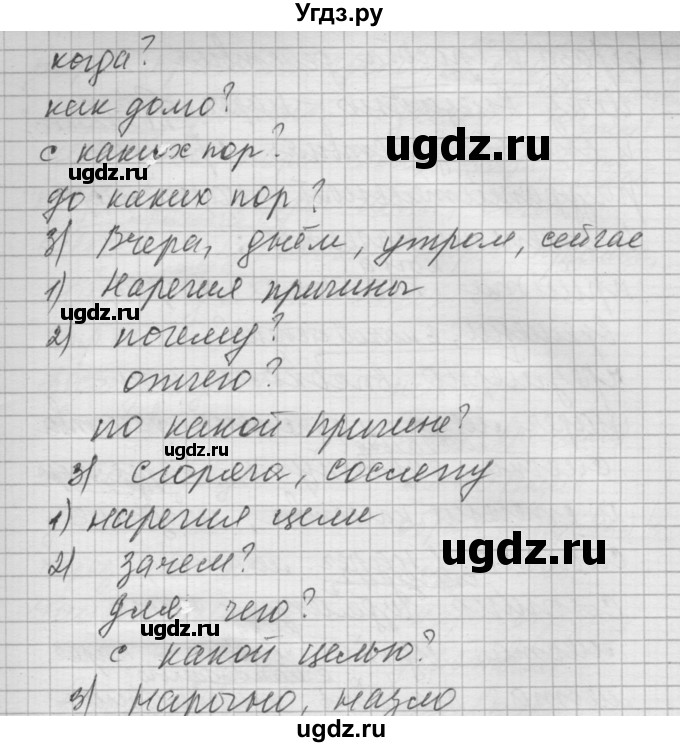 Угдз.ру
когда?
как долго?
ugdz.ru
с каких пор?
ugdz.ru
до каких пор?
3) Вчера, днём, утром, сейчас
1) Наречия причины
ugdz.ru
2) почему?
отчего?
по какой причине?
ugdz.ru
3) сгоряча, сослепу
1) наречия цели
ugdz.ru
2) зачем?
для чего?
ugdz.ru
с какой целью?
3) нарочно, назло
ugdz.ru